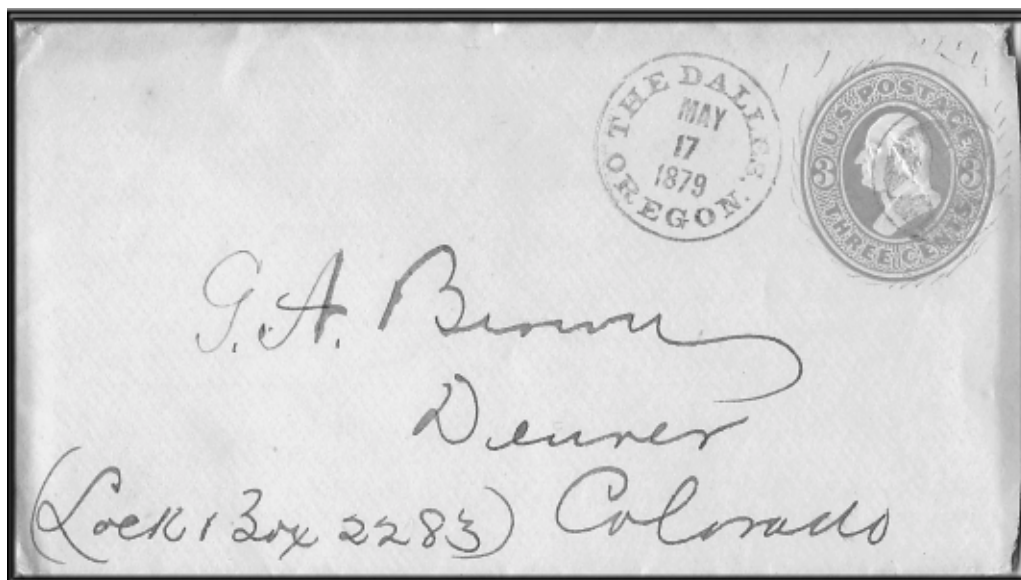 THE DALLES,
MAY
17
1879
OREGON.
U.S. POSTAGE
3 3
THREE CENTS
G. A. Brown
Denver
(Lock Box 2283) Colorado